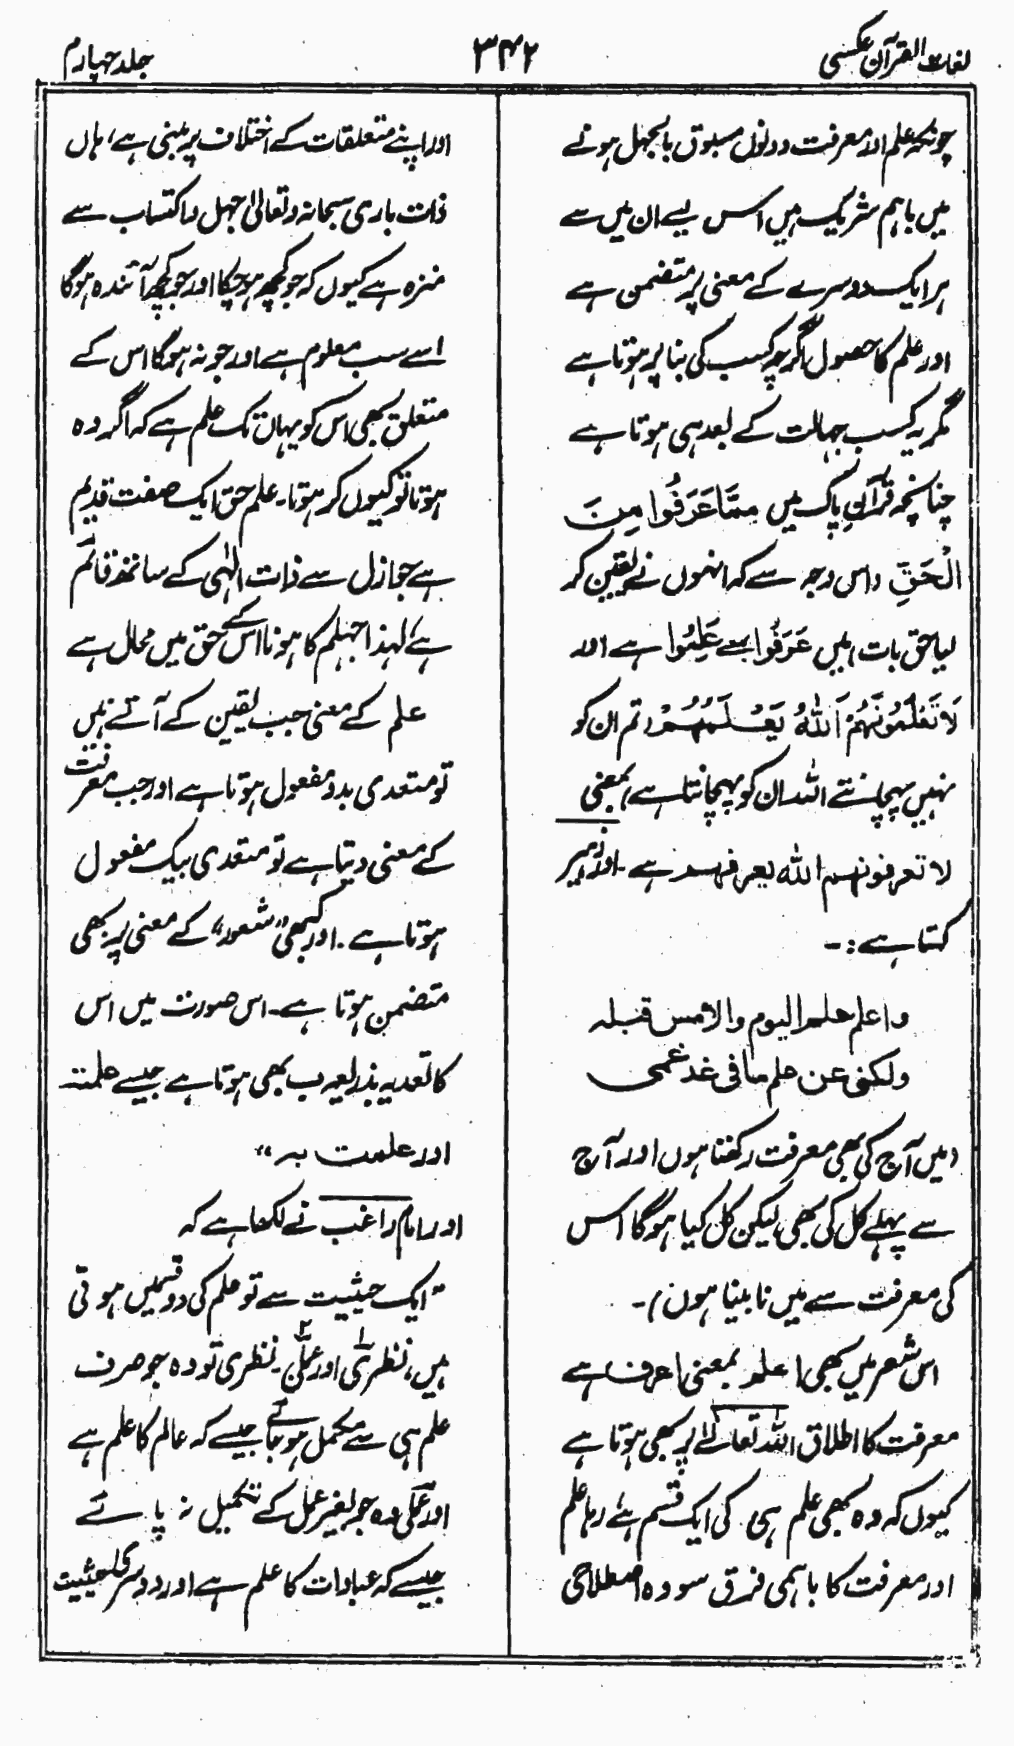 لغات القرآن عکسی
۳۴۲
جلد چہارم
چونکہ علم اور معرفت دونوں مسبوق بالجہل ہونے
میں باہم شریک ہیں اس لیے ان میں سے
ہر ایک دوسرے کے معنی پر متضمن ہے
اور علم کا حصول اگرچہ کسب کی بنا پر ہوتا ہے
مگر یہ کسب جہالت کے بعد ہی ہوتا ہے
چنانچہ قرآنِ پاک میں مِمَّا عَرَفُوا مِنَ
الْحَقِّ (اس وجہ سے کہ انہوں نے یقین کر
لیا حق بات) میں عَرَفُوا بمعنے عَلِمُوا ہے اور
لَا تَعْلَمُونَهُمْ اَللّٰهُ يَعْلَمُهُمْ (تم ان کو
نہیں پہچانتے اللہ ان کو پہچانتا ہے) بمعنی
لا تعرفونهم الله يعرفهم ہے۔ اور زہیر
کہتا ہے :۔
واعلم علم اليوم والامس قبله
ولكنني عن علم ما في غد عمي
(میں آج کی بھی معرفت رکھتا ہوں اور آج
سے پہلے کل کی بھی، لیکن کل کیا ہوگا اس
کی معرفت سے میں نابینا ہوں)۔
اس شعر میں بھی اعلم بمعنی اعرف ہے
معرفت کا اطلاق اللہ تعالےٰ پر بھی ہوتا ہے
کیوں کہ وہ بھی علم ہی کی ایک قسم ہے، رہا علم
اور معرفت کا باہمی فرق سو وہ اصطلاحی
اور اپنے متعلقات کے اختلاف پر مبنی ہے، ہاں
ذات باری سبحانہ و تعالیٰ جہل و اکتساب سے
منزہ ہے کیوں کہ جو کچھ ہو چکا اور جو کچھ آئندہ ہوگا
اسے سب معلوم ہے اور جو نہ ہوگا اس کے
متعلق بھی اس کو یہاں تک علم ہے کہ اگر وہ
ہوتا تو کیوں کر ہوتا۔ علم حق ایک صفت قدیم
ہے جو ازل سے ذات الٰہی کے ساتھ قائم
ہے، لہٰذا جہلم کا ہونا اس کے حق میں محال ہے
علم کے معنی جب یقین کے آتے ہیں
تو متعدی بدو مفعول ہوتا ہے اور جب معرفت
کے معنی دیتا ہے تو متعدی بیک مفعول
ہوتا ہے۔ اور کبھی "شعور" کے معنی پر بھی
متضمن ہوتا ہے۔ اس صورت میں اس
کا تعدیہ بذریعہ ب بھی ہوتا ہے جیسے علمتہ
اور علمت بہ"
اور امام راغب نے لکھا ہے کہ
"ایک حیثیت سے تو علم کی دو قسمیں ہوتی
ہیں، نظری۱ اور عملی۲۔ نظری تو وہ جو صرف
علم ہی سے مکمل ہو جائے جیسے کہ عالم کا علم ہے
اور عملی وہ جو بغیر عمل کے تکمیل نہ پائے
جیسے کہ عبادات کا علم ہے اور دوسری حیثیت